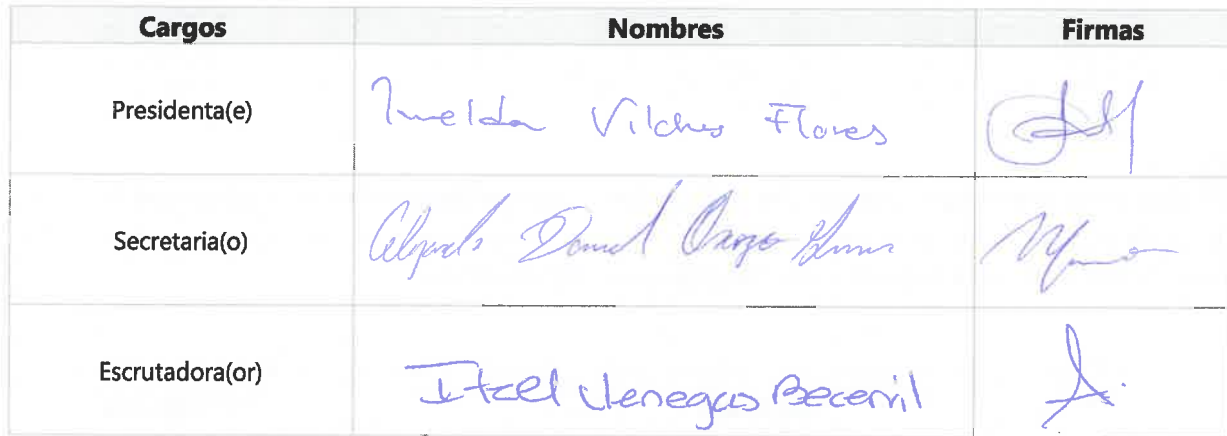 Cargos Nombres Firmas
Presidenta(e) Imelda Vilches Flores
Secretaria(o) Daniel
Escrutadora(or) Itzel Venegas Becerril